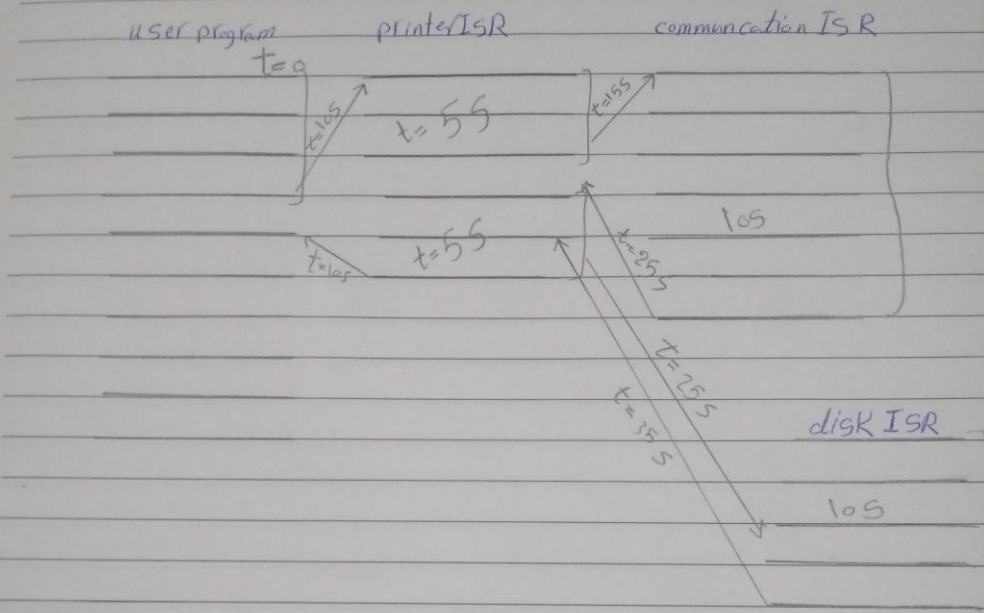 user program printerISR communcation ISR
t=0
t=10S t= 5S t=15S
10S
t=10S t= 5S t=25S
t=25S
t=35S
disk ISR
10S